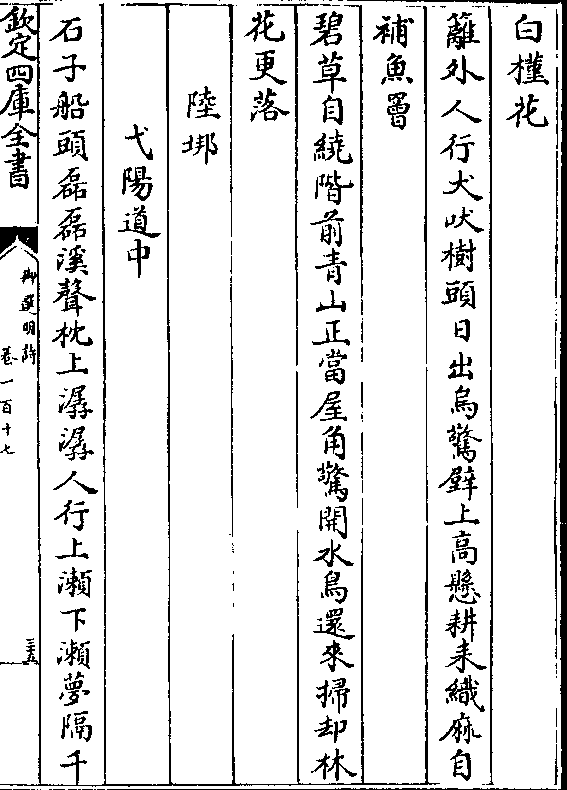 白槿花
籬外人行犬吠樹頭日出烏驚壁上高懸耕耒織麻自
補魚罾
碧草自繞階前青山正當屋角驚開水鳥還來掃却林
花更落
陸埛
弋陽道中
石子船頭磊磊溪聲枕上潺潺人行上瀬下瀬夢隔千
欽定四庫全書
御選明詩
卷一百十七
三五